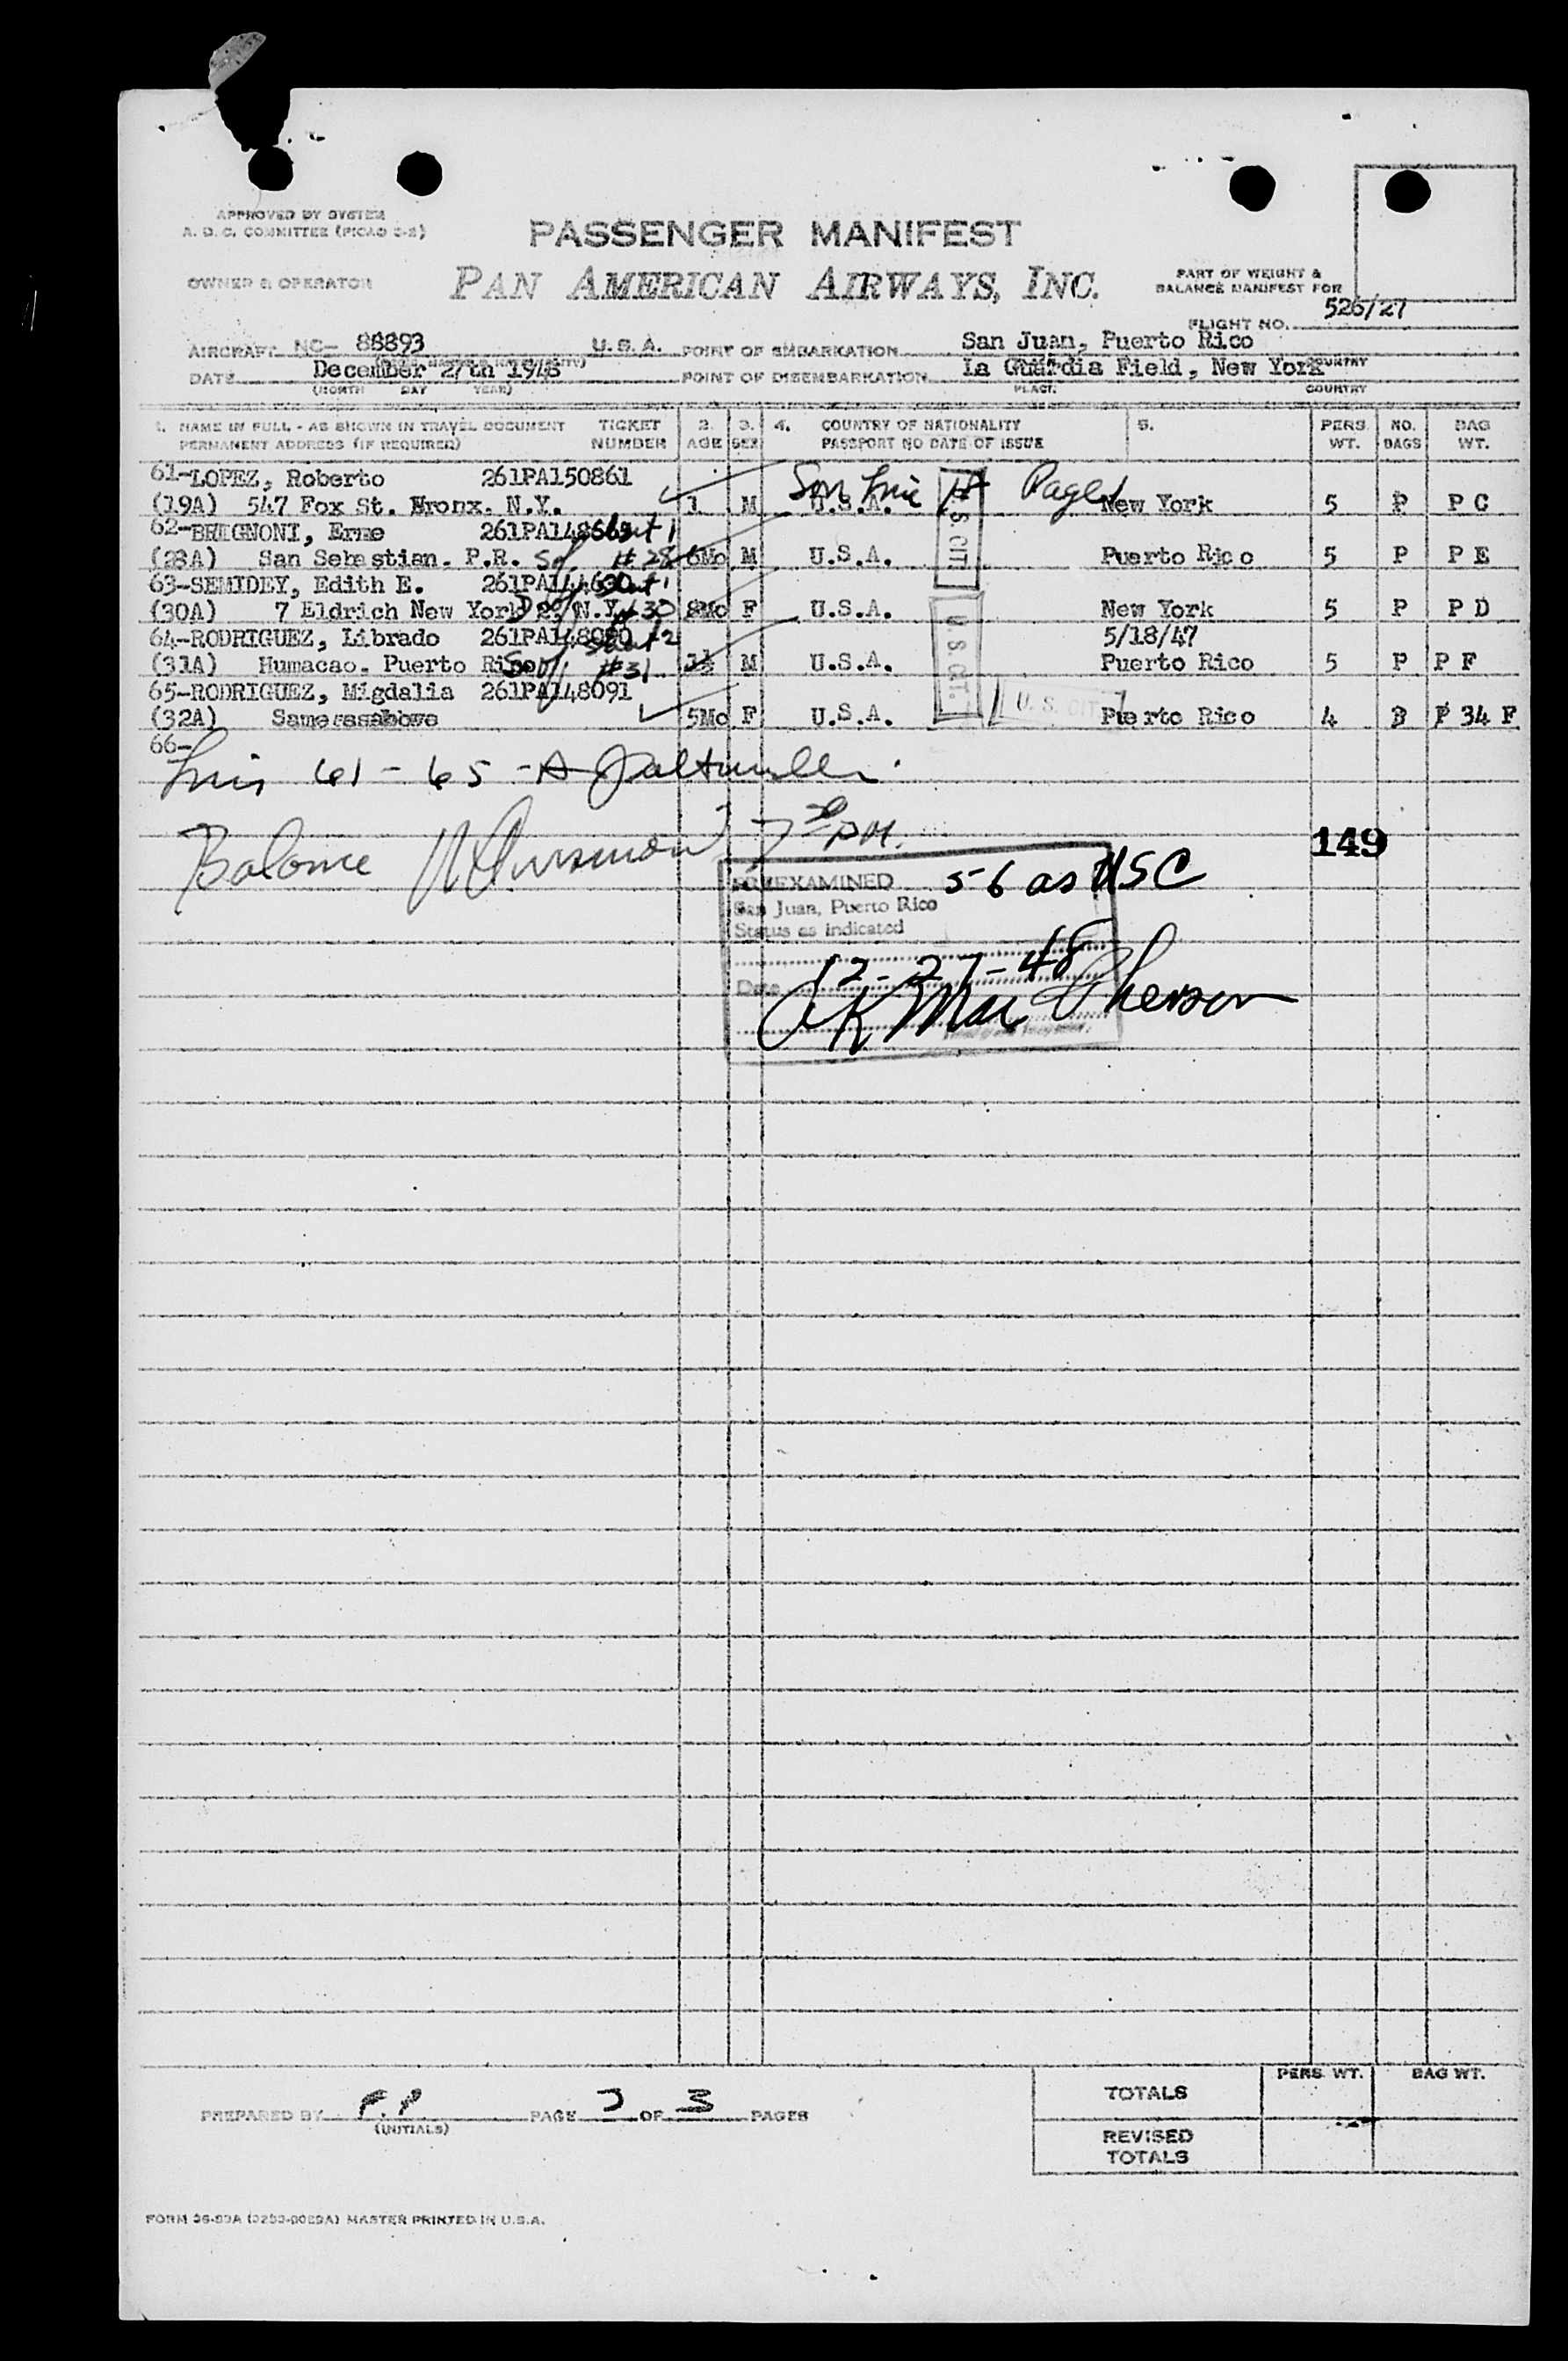 APPROVED BY SYSTEM
A. D. C. COMMITTEE (PICAO 2-2)
PASSENGER MANIFEST
OWNER & OPERATOR
PAN AMERICAN AIRWAYS, INC.
PART OF WEIGHT &
BALANCE MANIFEST FOR
FLIGHT NO. 526/27
AIRCRAFT NC- 88893 U. S. A. POINT OF EMBARKATION San Juan, Puerto Rico
DATE December 27th 1948 POINT OF DISEMBARKATION La Guardia Field, New York COUNTRY
(MONTH DAY YEAR) PLACE COUNTRY
1. NAME IN FULL - AS SHOWN IN TRAVEL DOCUMENT TICKET 2. 3. 4. COUNTRY OF NATIONALITY 5. PERS. NO. BAG
PERMANENT ADDRESS (IF REQUIRED) NUMBER AGE SEX PASSPORT NO DATE OF ISSUE WT. BAGS WT.
61-LOPEZ, Roberto 261PA150861 Page 1
(19A) 547 Fox St. Bronx. N.Y. 1 M U.S.A. New York 5 P P C
62-BRIGNONI, Erme
(28A) San Sebastian. P.R. # 28 6Mo M U.S.A. U.S. CIT. Puerto Rico 5 P P E
63-SEMIDEY, Edith E.
(30A) 7 Eldrich New York N.Y. # 30 8Mo F U.S.A. New York 5 P P D
64-RODRIGUEZ, Librado 261PA148090 5/18/47
(31A) Humacao. Puerto Rico #31 1½ M U.S.A. U.S. CIT. Puerto Rico 5 P P F
65-RODRIGUEZ, Migdalia 261PA148091
(32A) Same as above 5Mo F U.S.A. U. S. CIT Puerto Rico 4 P 34 F
66-
61 - 65 -
Balance 7 30 PM.
149
PREEXAMINED 56 as USC
San Juan, Puerto Rico
Status as indicated
Date 12-27-48
PREPARED BY P.P PAGE OF 3 PAGES
(INITIALS)
PERS. WT. BAG WT.
TOTALS
REVISED
TOTALS
MASTER PRINTED IN U.S.A.